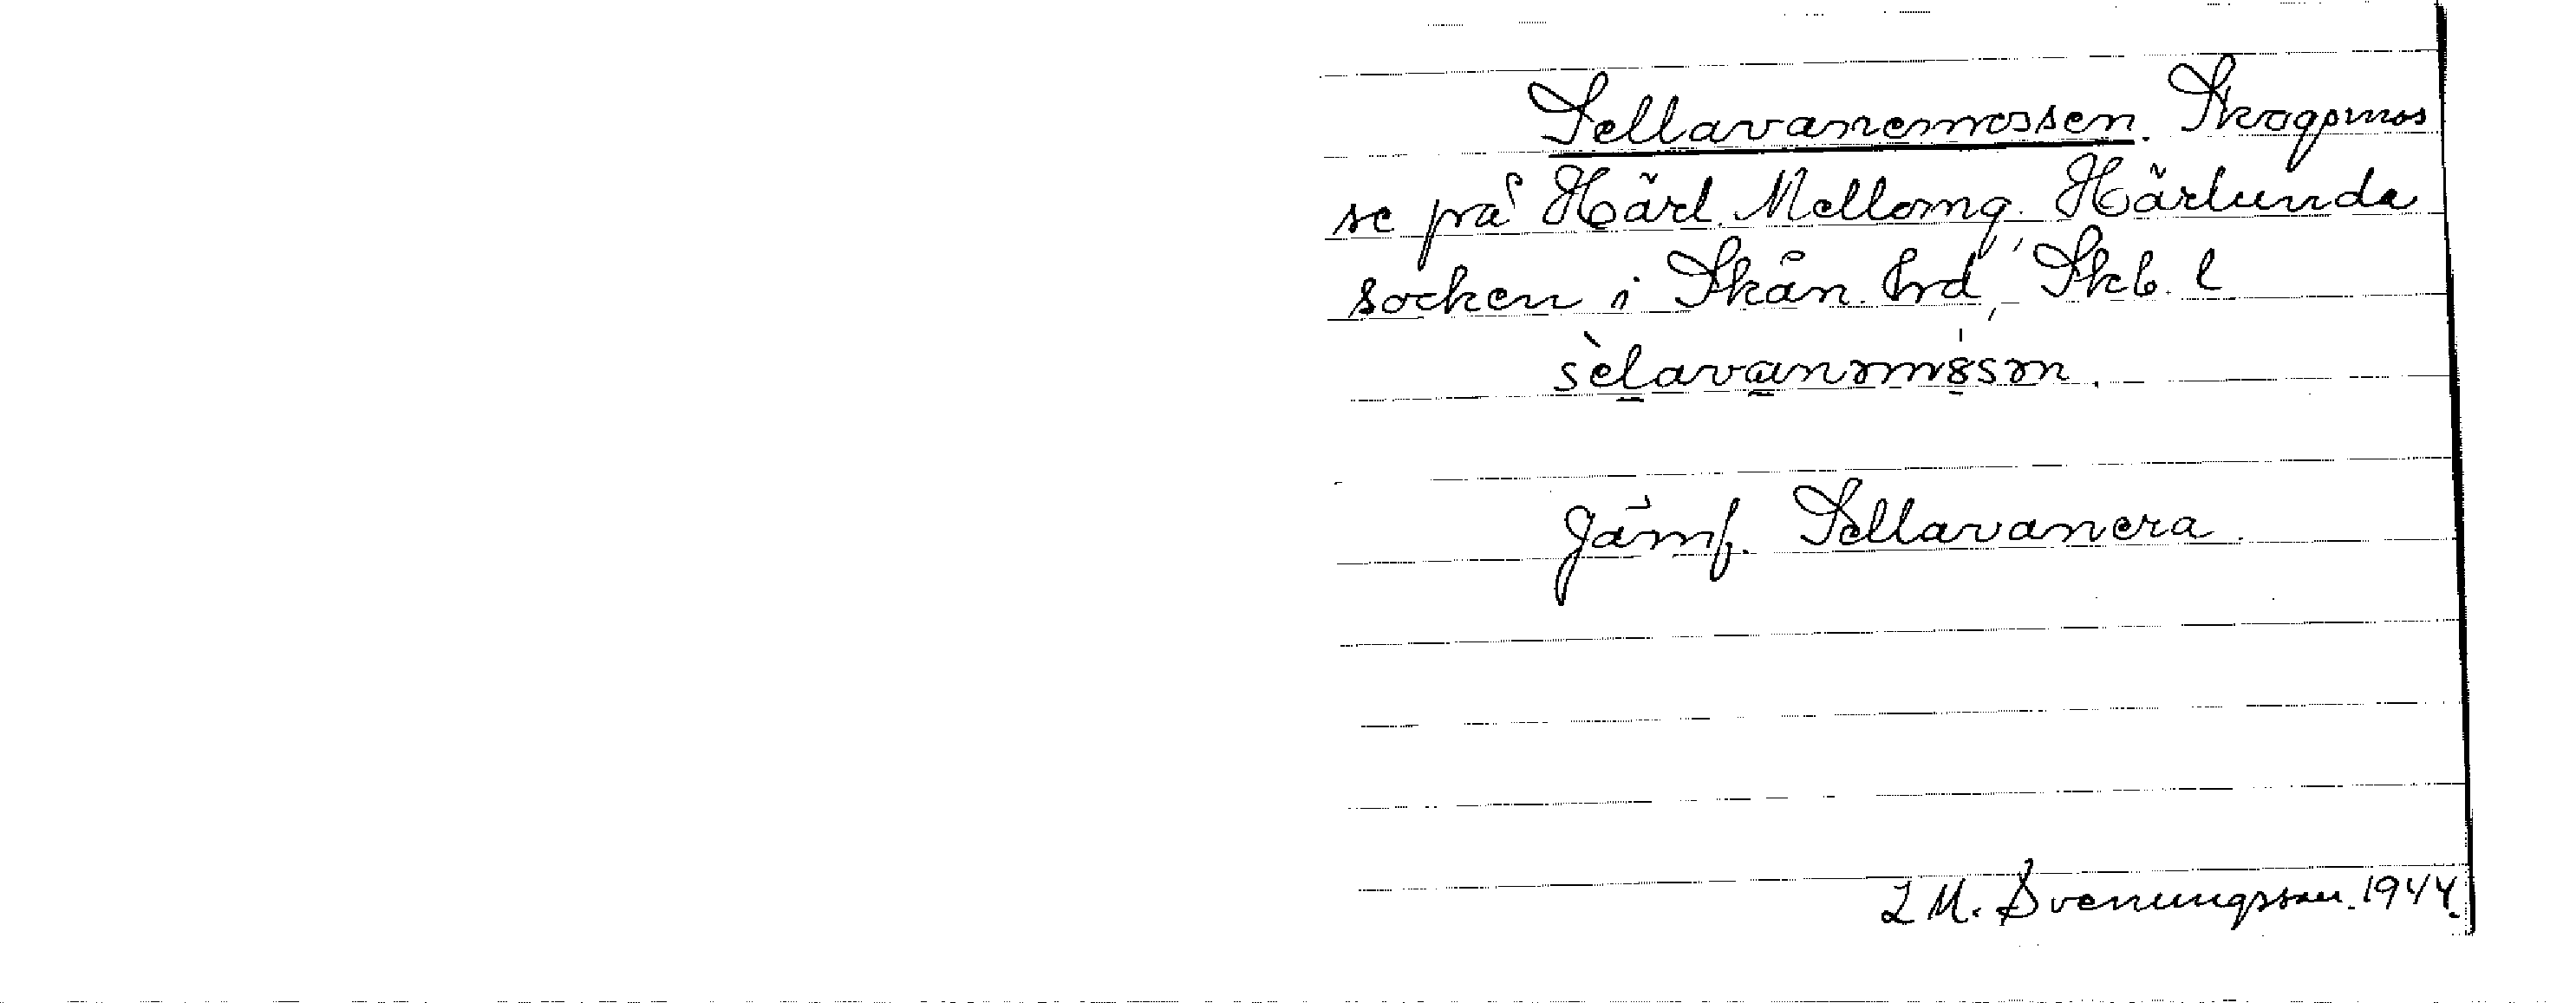 Sellavanemossen. Skogsmos
se på Härl. Mellomg. Härlunda
socken i Skån. hrd, Skb. l
sèlavanəmȣsən.
Jämf. Sellavanera.
L M. Svenungsson. 1944.